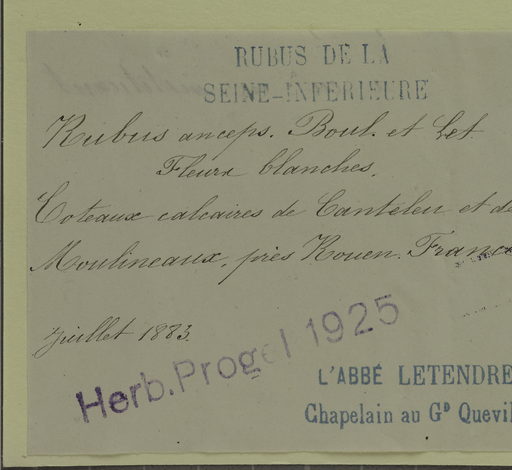 RUBUS DE LA
SEINE-INFERIEURE
Rubus anceps. Boul. et Let.
Fleurs blanches.
Coteaux calcaires de Canteleu et de
Moulineaux, près Rouen. Franc
Juillet 1883.
Herb. Progel 1925
L'ABBÉ LETENDRE
Chapelain au Gᴰ Quevil